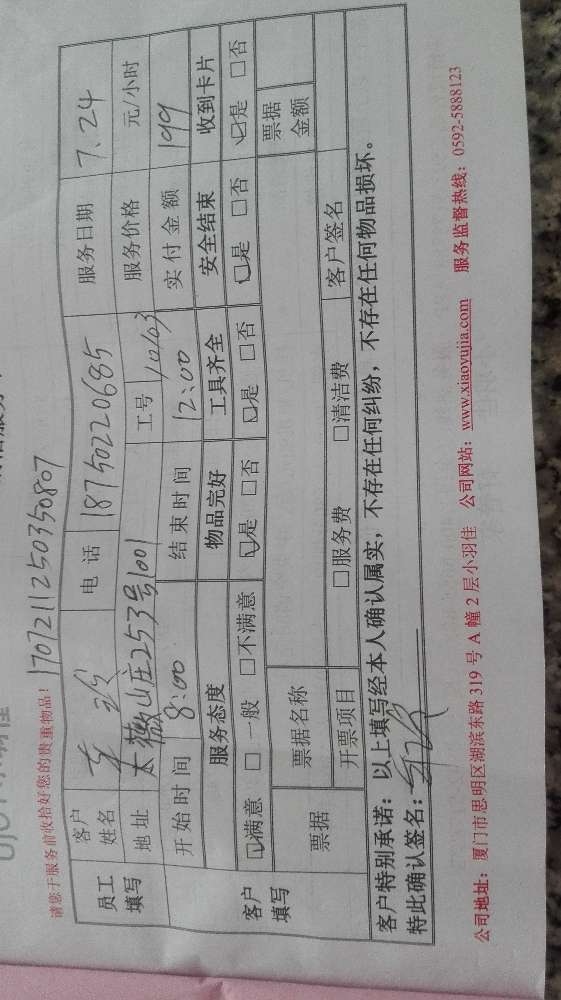 请您于服务前收拾好您的贵重物品！ 170721125035807
员工填写 客户姓名 电话 18750220685 服务日期 7.24
地址 太微山庄253号1001 工号 10103 服务价格 元/小时
开始时间 8:00 结束时间 12:00 实付金额 199
客户填写 服务态度 物品完好 工具齐全 安全结束 收到卡片
☑满意 □一般 □不满意 ☑是 □否 ☑是 □否 ☑是 □否 ☑是 □否
票据 票据名称 票据金额
开票项目 □服务费 □清洁费 客户签名
客户特别承诺：以上填写经本人确认属实，不存在任何纠纷，不存在任何物品损坏。
特此确认签名：
公司地址：厦门市思明区湖滨东路 319 号 A 幢 2 层小羽佳 公司网站：www.xiaoyujia.com 服务监督热线：0592-5888123